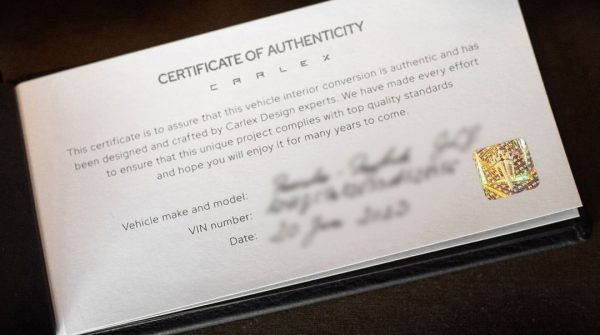 CERTIFICATE OF AUTHENTICITY
CARLEX
This certificate is to assure that this vehicle interior conversion is authentic and has
been designed and crafted by Carlex Design experts. We have made every effort
to ensure that this unique project complies with top quality standards
and hope you will enjoy it for many years to come.
Vehicle make and model:
VIN number:
Date: